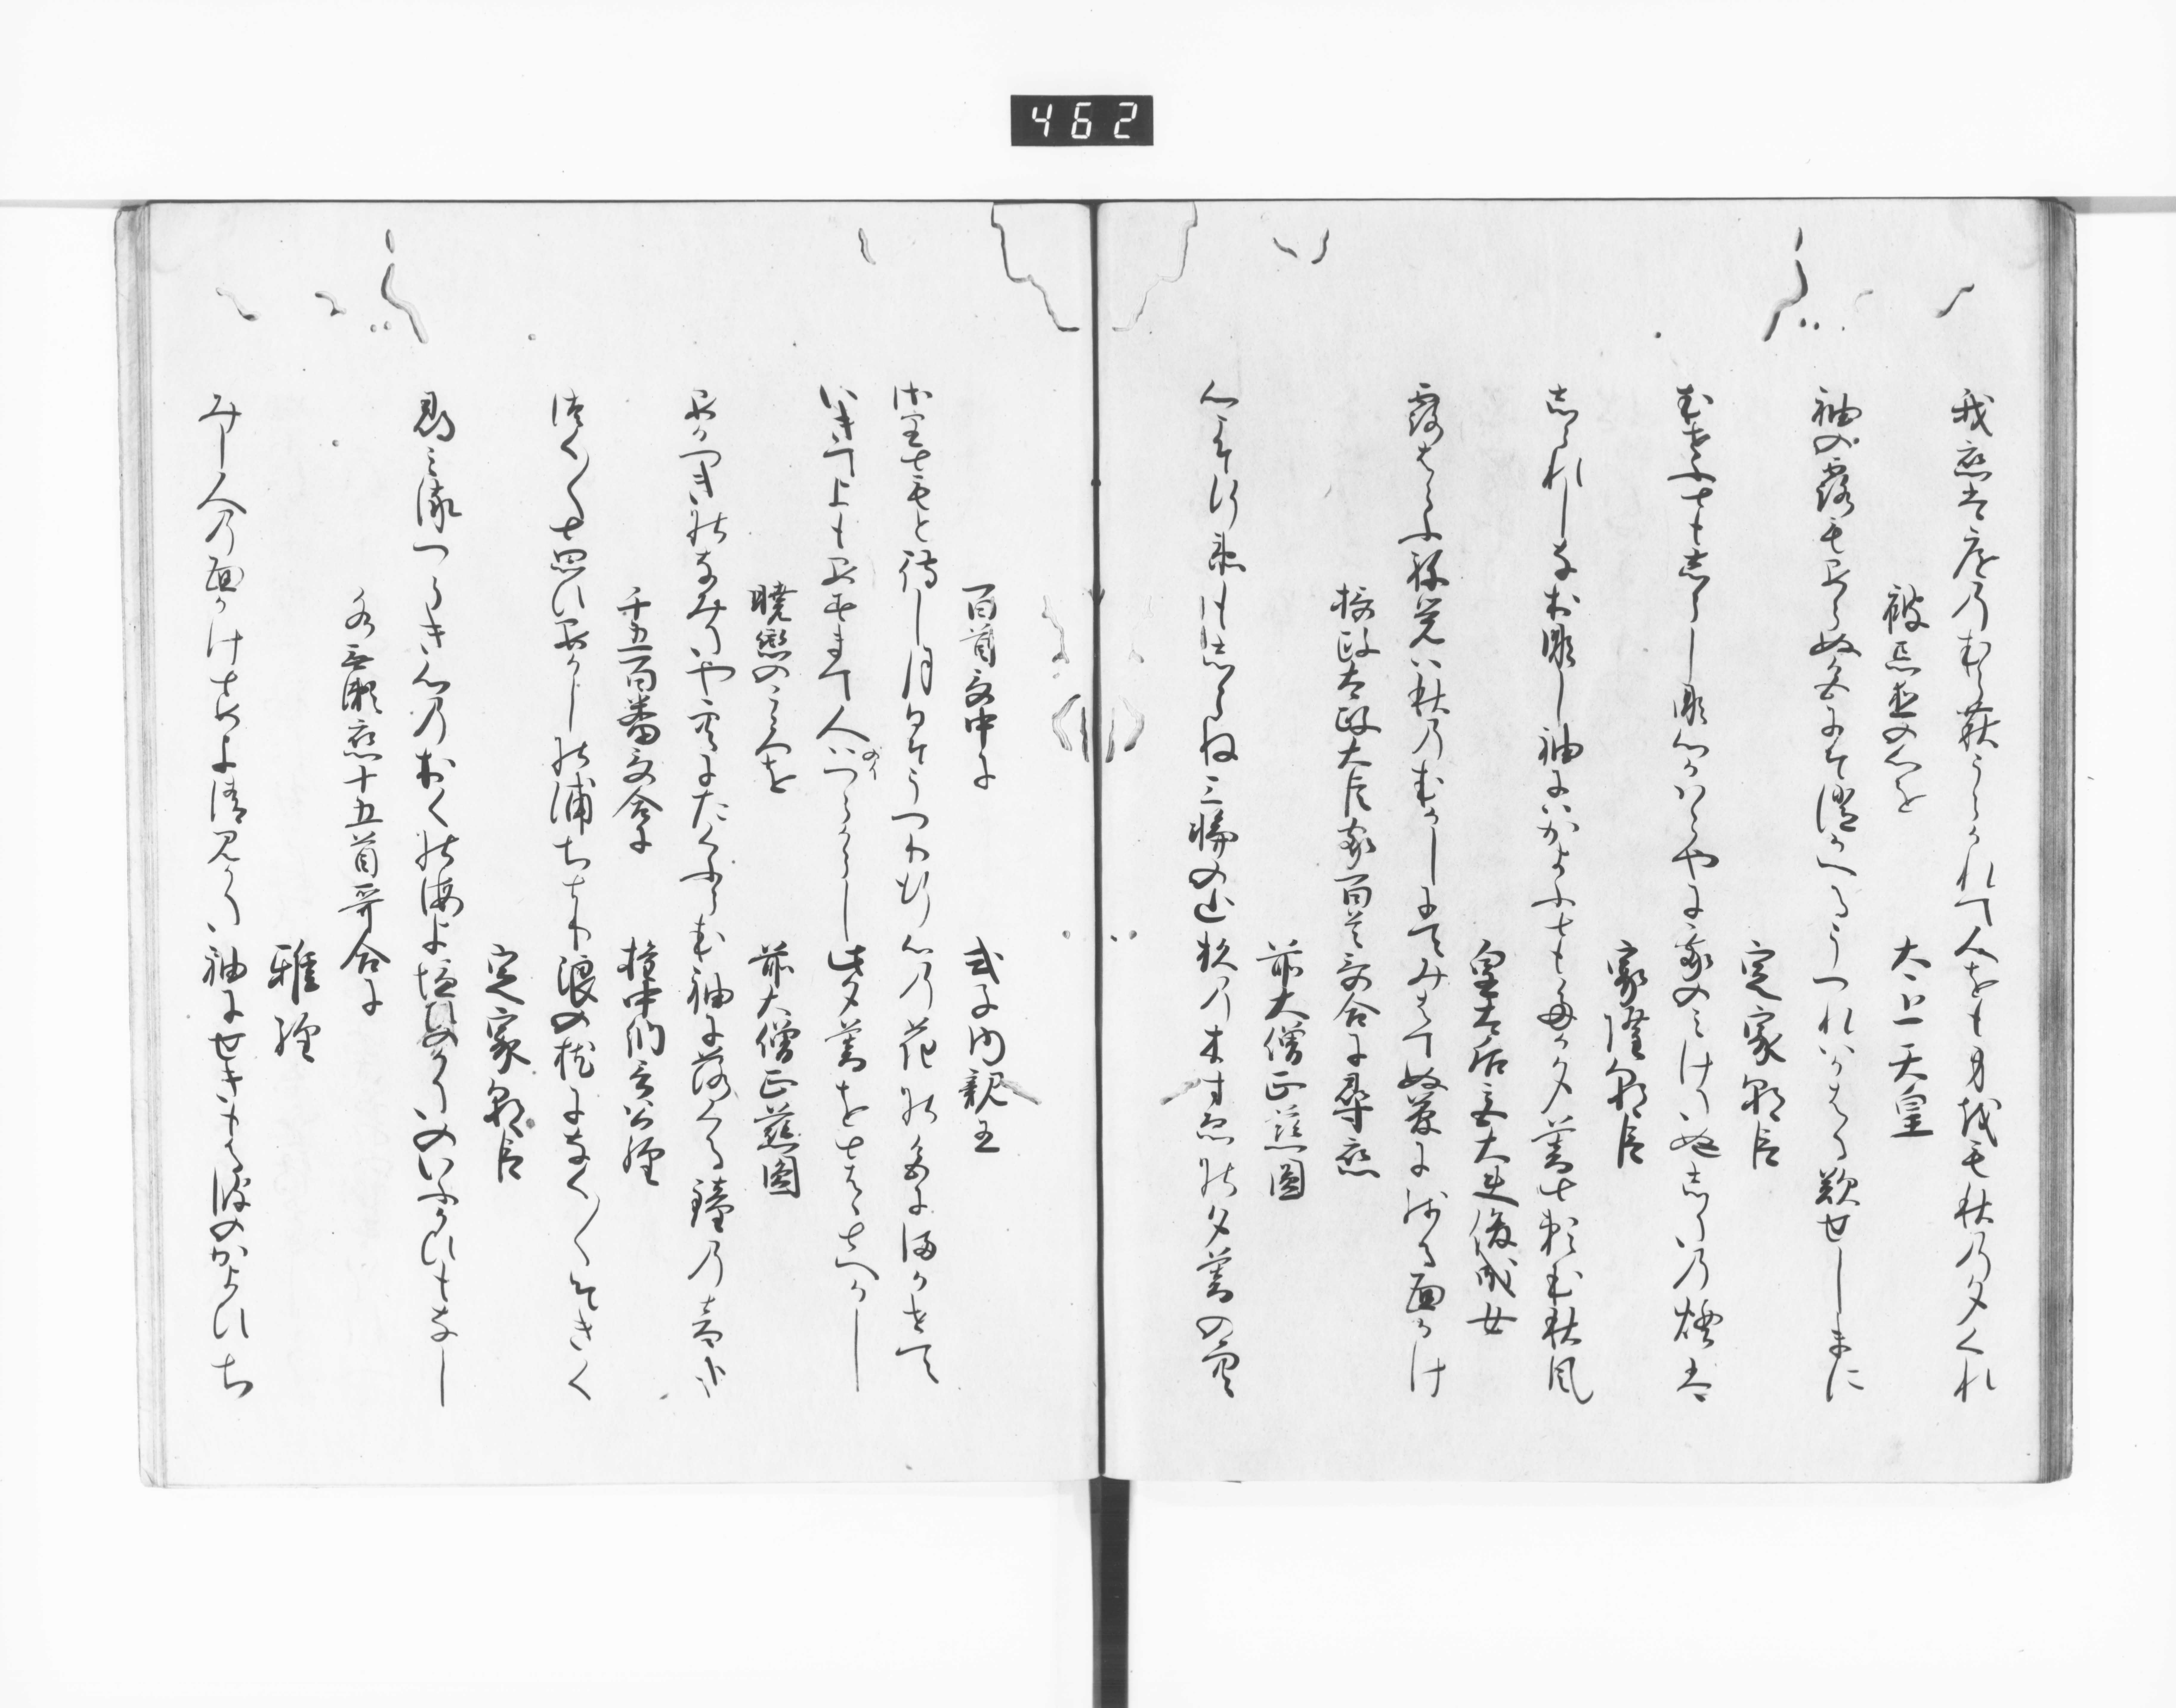 我恋は庭乃むら萩うらかれて人をも身越も秋乃夕くれ
被忘恋の心を　太上天皇
袖の露もあらぬ色にそ消かへるうつれはかはる歎せしまに
定家朝臣
むせふとも志らし那心かはらやに我のみけたぬ志たの煙は
家隆朝臣
志られしなおなし袖にはかよふともたか夕暮とたのむ秋風
皇太后宮大夫俊成女
露はらふねさめは秋のむかしにてみはてぬ夢に残る面かけ
摂政太政大臣家百首哥合に尋恋
前大僧正慈圓
心こそ行衛も志らね三輪の山杉の木すゑの夕暮の空
百首哥中に　式子内親王
さりともと待し月日そうつり行心の花の色にまかせて
いきてよもあすまて人はつらからし此夕暮をとはゝとへかし
暁恋のこゝろを　前大僧正慈圓
あか月のなみたや空にたくふらむ袖に落くる鐘の音かな
千五百番哥合に　権中納言公経
つく／＼と思ひあかしの浦ちとり浪の枕になく／＼そきく
定家朝臣
尋みるつらき心のおくの海よ塩ひのかたのいふかひもなし
水無瀬恋十五首哥合に
雅経
みし人の面かけとめよ清見かた袖にせきもる波のかよひち
462